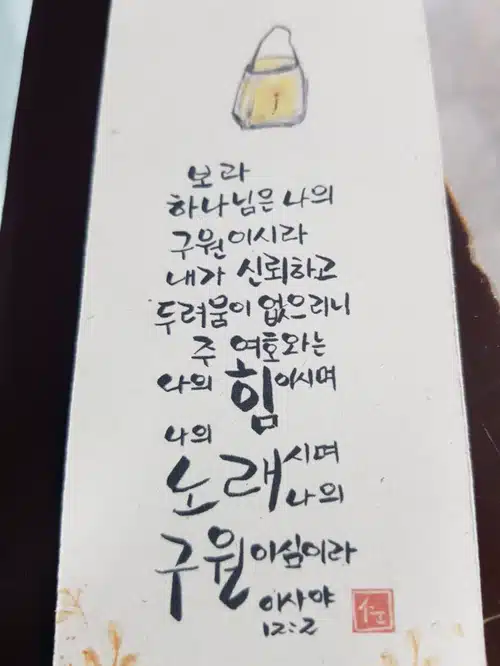 보라
하나님은 나의
구원이시라
내가 신뢰하고
두려움이 없으리니
주 여호와는
나의 힘이시며
나의
노래시며
나의
구원이심이라
이사야
12:2